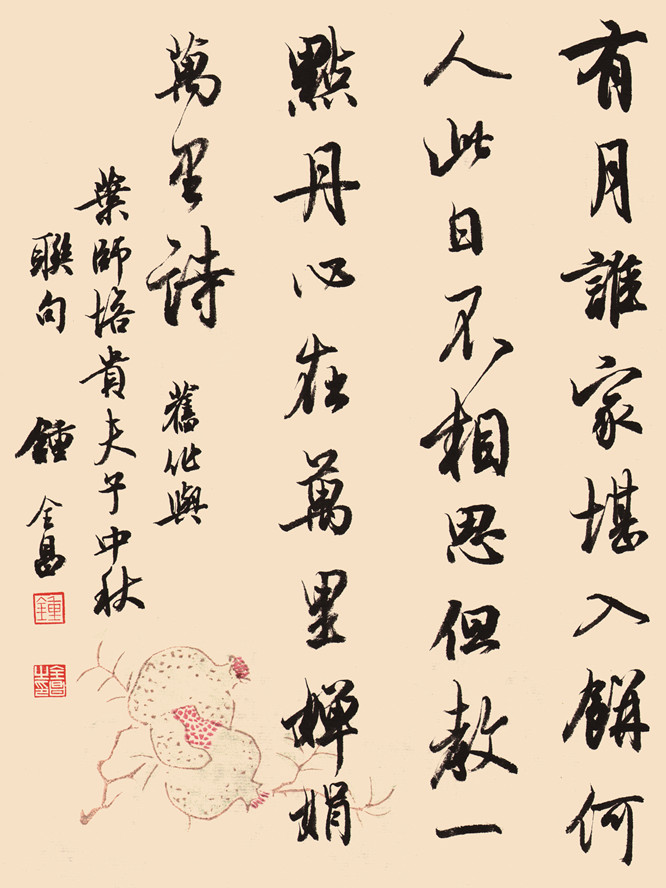 有月誰家堪入餅何
人此日不相思但教一
點丹心在萬里嬋娟
萬里詩
舊作與
葉師培貴夫子中秋
聯句
鍾全昌
鍾